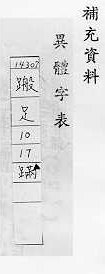 補充資料
異體字表
14307
蹣
足
10
17
蹒